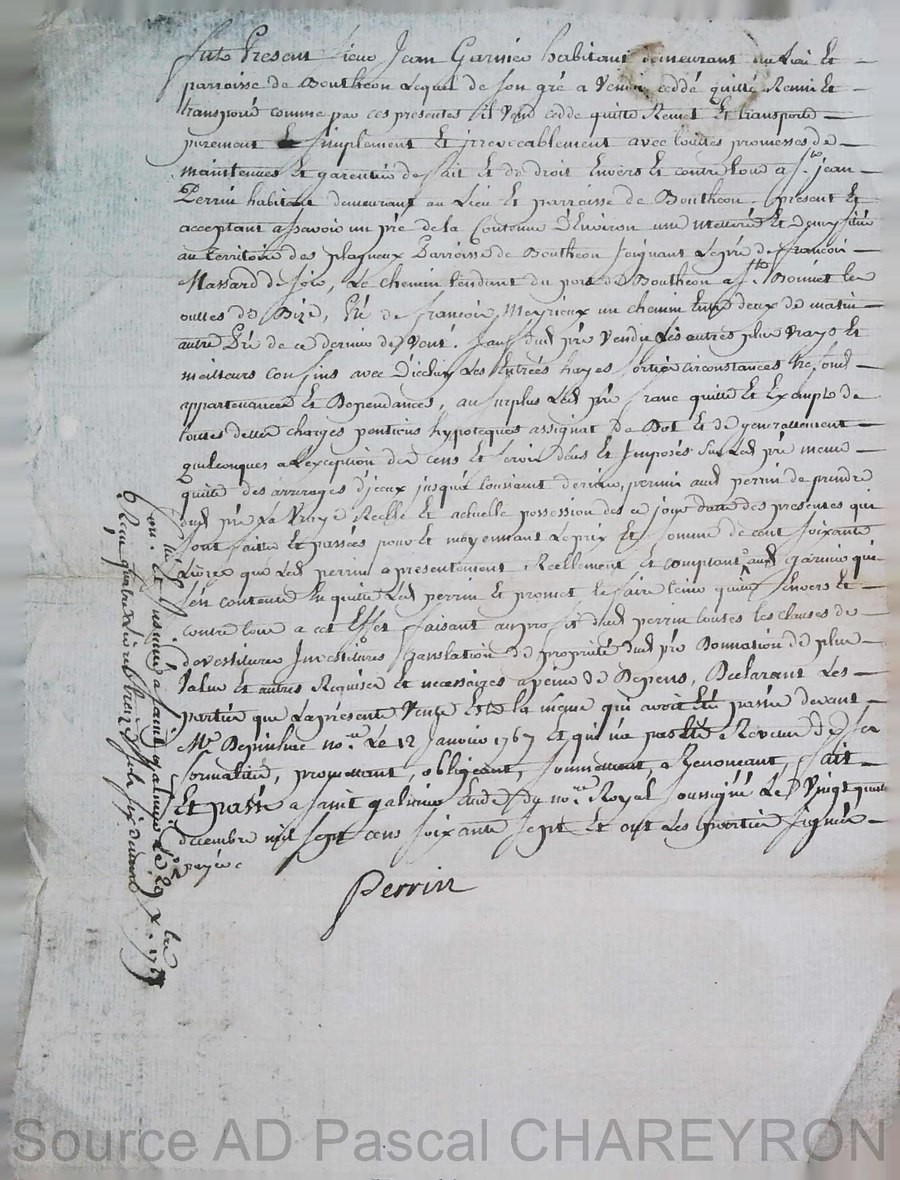 fut Present sieur Jean Garnier habitant demeurant au Lieu Et
parroisse de Bouthéon Lequel de son gré a Vendu ceddé quitté Remis Et
transporté comme par ces presentes il Vend cedde quitte Remet Et transporte
purement Et simplement Et irrevocablement avec toutes promesses de
maintenues Et garentie de fait Et de droit Envers Et contre tous a sr. jean
Perrin habitant demeurant au Lieu Et parroisse de Bouthéon present Et
acceptant a sçavoir un pré de la Contenue d'Environ une metteré Et demy située
au territoire des plagneux Parroisse de Bouthéon joignant Le pré de françois
Massard de soir, Le chemin tendant du port de Bouthéon a st. Bonnet les
oulles de Bize, Pré de françois Meyrieux un chemin Entre deux de matin
autre Pré de ce dernier de Vent. sauf dud pré Vendu Les autres plus Vrays Et
meilleurs confins avec d'icelui Les Entrées hayes sorties circonstances
appartenances Et Dependances, au surplus Led pré franc quitte Et Exempt de
toutes dettes charges pentions hypoteques assignat de Dot Et de generallement
quelconques a Lexception des cens Et servis deus Et Imposés sur Led pré meme
quitte des arrerages d'iceux jusqu'a toussaint dernier, permis aud perrin de prendre
dud pré La Vraye Reelle Et actuelle possession des ce jour datte des presentes qui
sont faites Et passées pour Et moyennant Le prix Et somme de cent soixante
Livres que Led perrin a presentement Reellement Et comptant aud Garnier qui
s'en contente En quitte Led perrin Et promet le faire tenir quitte Envers Et
contre tous a cet Effet faisant au profit dud perrin toutes les clauses de
devestitures Investitures translation de propriété dud pré Donnation de plus
Value Et autres Requises et necessaires a peine de Depens, Declarant Les
parties que La presente Vente Est la même qui avoit Eté passée devant
Me No.re Le 12 Janvier 1767 Et qui n'a pas Eté Revetue de ses
formalités, promettant, obligeant, soumettant a Renoncant, fait
Et passé a saint galmier Etude du no.re Royal soussigné Le Vingt quatre
decembre mil sept cens soixante sept Et ont Les parties signée
Perrin
con. Et Insinué a saint galmier Le 29 x.bre 1767
Recu quatre Livres treize sols six deniers
Source AD Pascal CHAREYRON